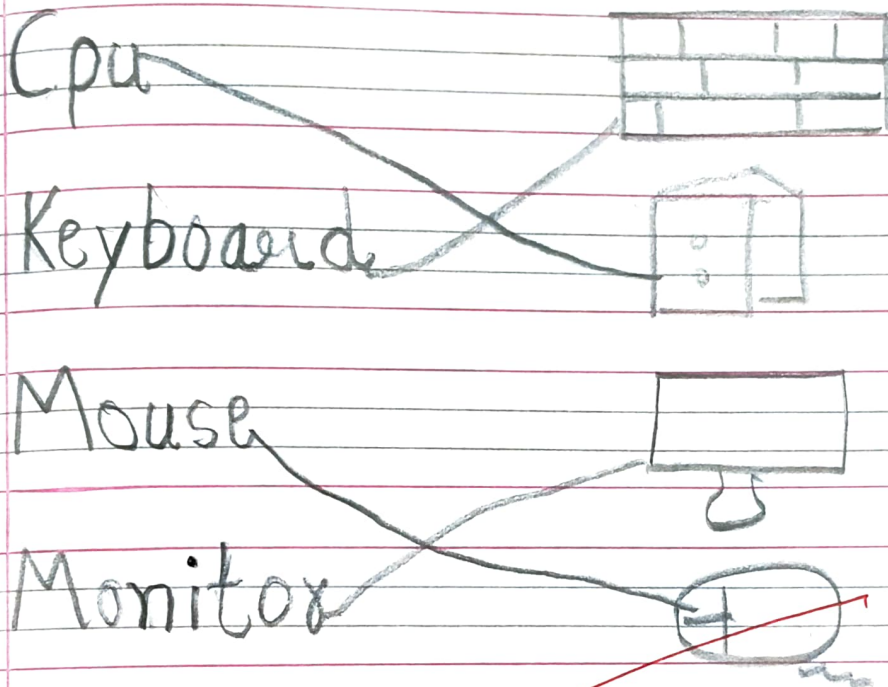 Cpu
Keyboard
Mouse
Monitor